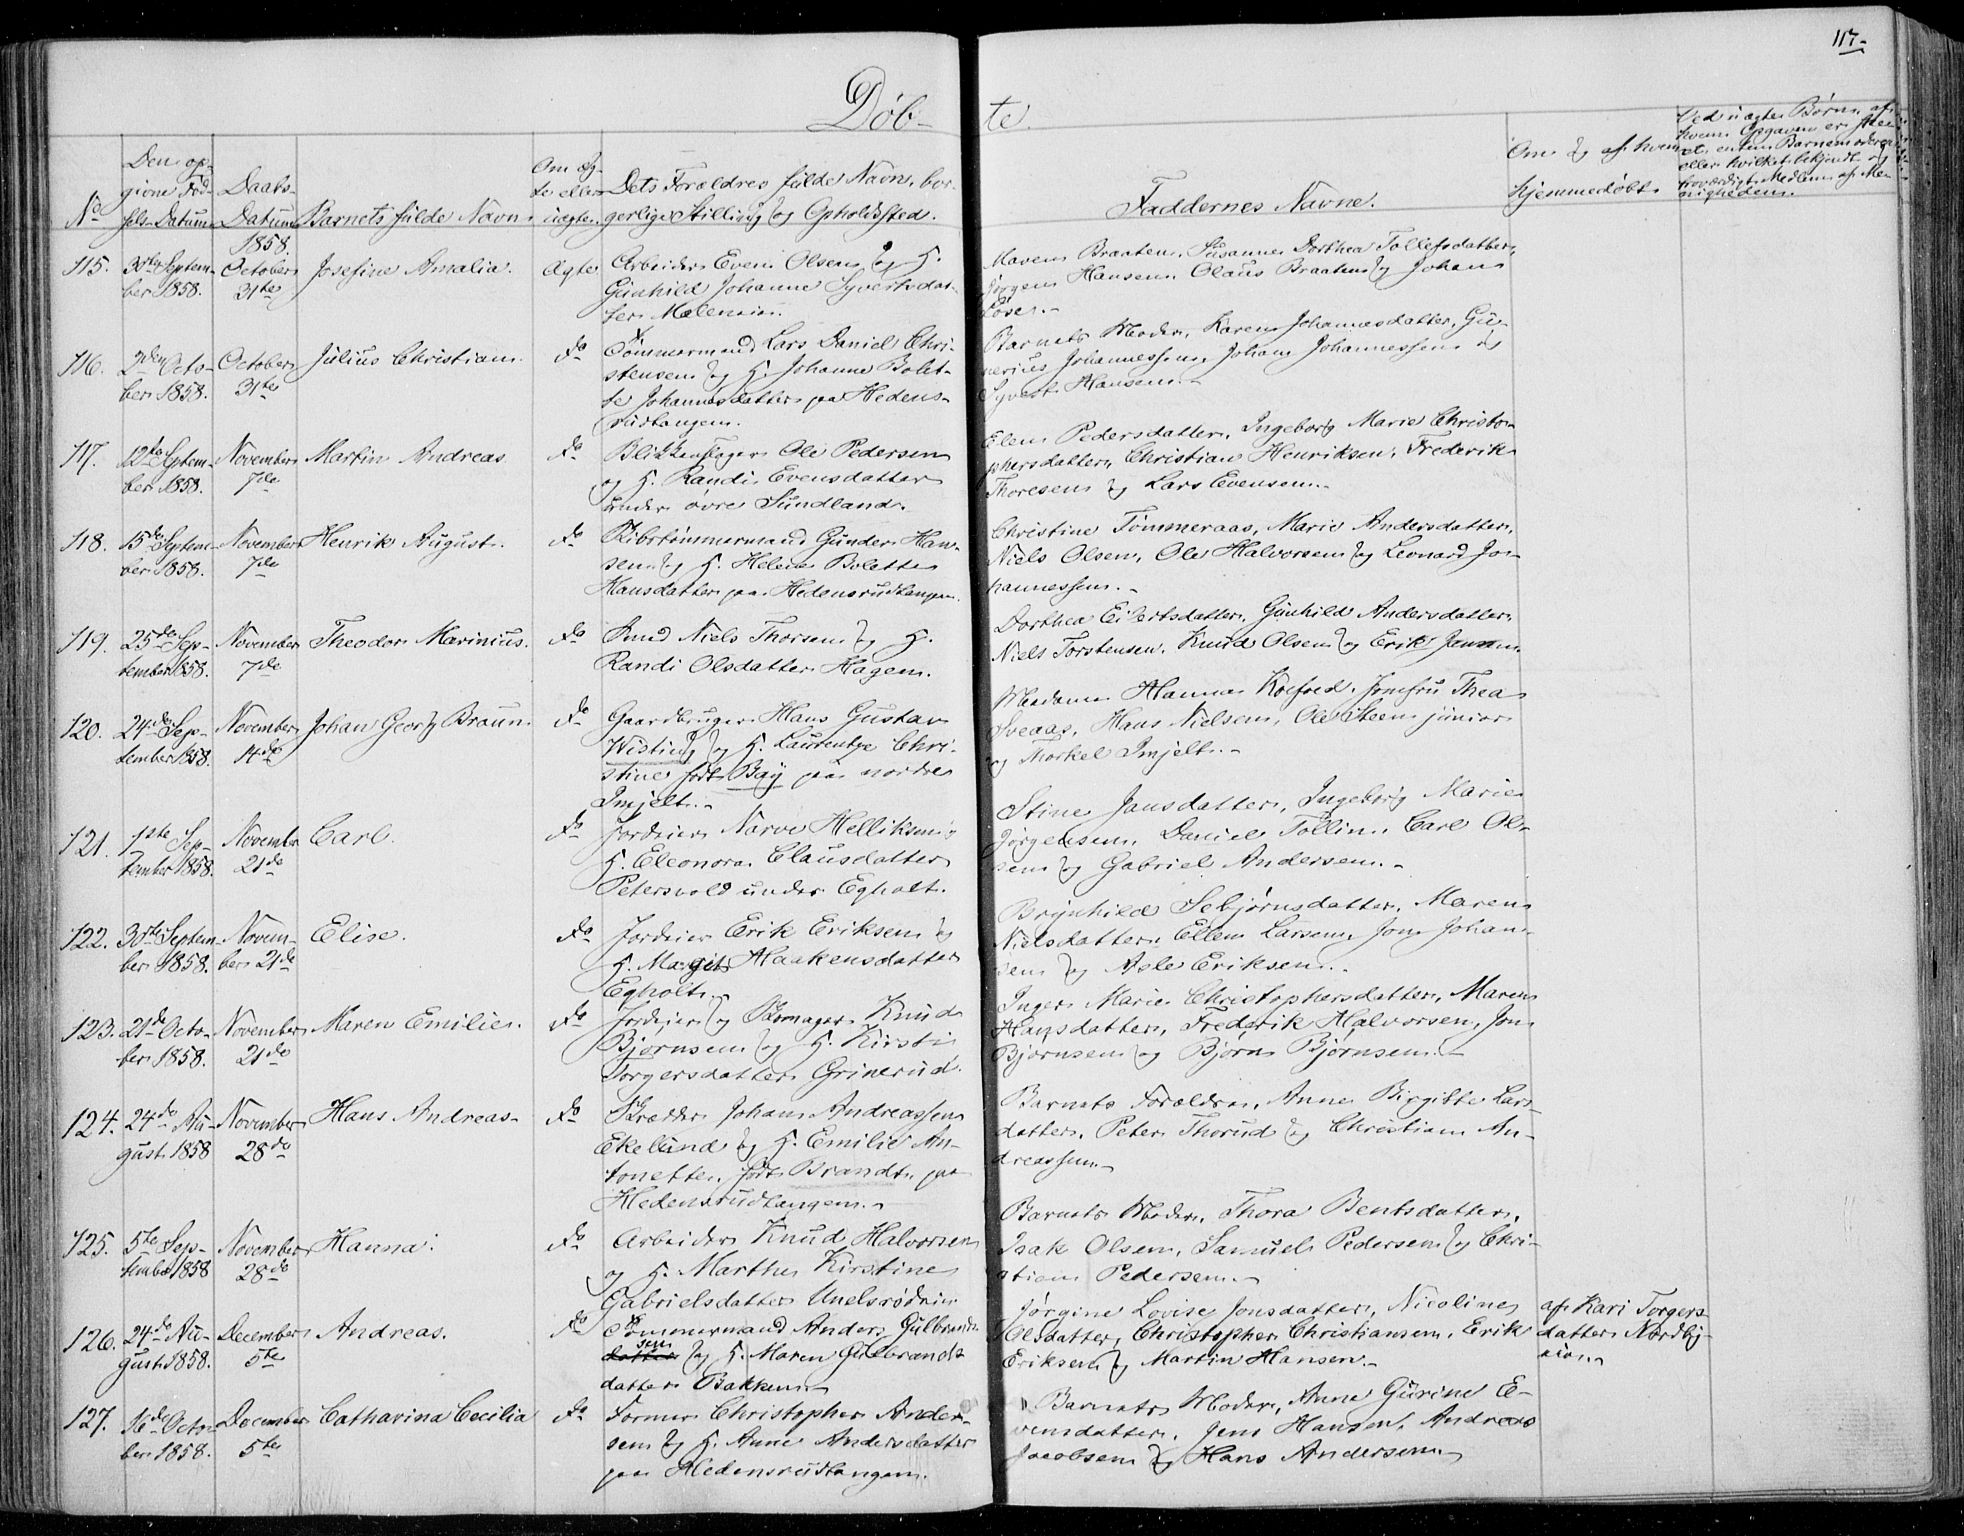 117.
Döb-
te.
No
Den op-
givne Föd-
sels-Datum
Daabs-
Datum
1858.
Barnets fulde Navn
Om æg-
te eller
uægte.
Dets Forældres fulde Navn, bor-
gerlige Stilling og Opholdssted.
Faddernes Navne.
Om og af hvem
hjemmedöbt
Ved uægte Börn, af
hvem Opgaven er skee
eller hvilket bekjendt og
troværdigt Medlem af Me-
nigheden.
115.
30te Septem-
ber 1858.
October
31te
Josefine Amalia.
Ægte
Arbeider Even Olsen og H.
Gunhild Johanne Syvertsdat-
ter
Maren Braaten, Susanne Dorthea Tollefsdatter,
Jörgen Hansen, Olaus Braaten og Johan
116.
2den Octo-
ber 1858.
October
31te
Julius Christian.
Do
Tömmermand Lars Daniel Chri-
stensen og H. Johanne Bolet-
te Johannesdatter paa Hedens-
rudtangen.
Barnets Moder, Karen Johannesdatter, Gu-
nerius Johannessen, Johan Johannessen og
Syvert Hansen.-
117.
12te Septem-
ber 1858.
November
7de
Martin Andreas
Do
Blikkenslager Ole Pedersen
og H. Randi Evensdatter
under övre Sundland.
Elen Pedersdatter, Ingeborg Marie Christo-
phersdatter, Christian Henriksen, Frederik
Thoresen og Lars Evensen.-
118.
15de Septem-
ber 1858.
November
7de
Henrik August.
Do
Ribstömmermand Gunder Han-
sen og H. Helene Bolette
Hansdatter paa Hedensrudtangen.
Christine Tömmeraas, Marie Andersdatter,
Niels Olsen, Ole Halvorsen og Leonard Jo-
hannessen.-
119.
25de Sep-
tember 1858.
November
7de
Theodor Marinius.
Do
Smed Niels Thorsen og H.
Randi Olsdatter Hagen.
Dorthea Eilertsdatter, Gunhild Andersdatter,
Niels Torstensen, Knud Olsen og Erik Jansen.
120.
24de Sep-
tember 1858.
November
14de
Johan Georg Braun.
Do
Gaardbruger Hans Gustav
Wisting og H. Laurentze Chri-
stine födt Bay paa nordre
Imjelt.-
Madame Hanna Koefoed, Jomfru Thea
Sveaas, Hans Nielsen, Ole Steen junior
og Thorkel Imjelt.-
121.
1ste Sep-
tember 1858.
November
21de
Carl.
Do
Jordeier Narve Helliksen og
H. Eleonora Clausdatter
Petersvold under Egholt.
Stine Jansdatter, Ingeborg Marie
Jörgensen, Daniel Tollin, Carl Ol-
sen og Gabriel Andersen.-
122.
30te Septem-
ber 1858.
Novem-
ber 21de
Elise.
Do
Jordeier Erik Eriksen og
H. Margit Haakensdatter
Egholt.
Brynhild Sebjörnsdatter, Maren
Nielsdatter, Ellen Larsen, Jon Johan-
sen og Asle Eriksen.-
123.
21de Octo-
ber 1858.
November
21de
Maren Emilie.
Do
Jordeier og Skomager Knud
Björnsen og H. Kirsti
Torgersdatter Grinerud.
Inger Marie Christophersdatter, Maren
Hansdatter, Frederik Halvorsen, Jon
Björnsen og Björn Björnsen.-
124.
24de Au-
gust 1858
November
28de
Hans Andreas-
Do
Skrædder Johan Andreassen
Ekelund og H. Emilie An-
tonette, födt Brandt, paa
Hedensrudtangen.-
Barnets Forældre, Anne Birgitte Lars-
datter, Peter Thorud og Christian An-
dreassen.-
125.
5te Sep-
tember 1858
November
28de
Hanna.
Do
Arbeider Knud Halvorsen
og H. Marthe Kirstine
Gabrielsdatter
Barnets Moder, Thora Bentsdatter,
Isak Olsen, Samuel Pedersen og Chri-
stian Pedersen.-
126.
24de Au-
gust 1858.
December
5te
Andreas.
Do
Tömmermand Anders Gulbrand-
sen
datter og H. Maren Gulbrands-
datter Bakken.-
Jörgine Lovise Jonsdatter, Nicoline
Olsdatter, Christopher Christiansen, Erik
Eriksen og Martin Hansen.-
af Kari Torgers-
datter
127.
16de Octo-
ber 1858.
December
5te
Catharina Cecilia
Do
Former Christopher Ander-
sen og H. Anne Andersdatter
paa Hedensrudtangen.
Barnets Moder, Anne Gurine E-
vensdatter, Jens Hansen, Andreas
Jacobsen og Hans Andersen.